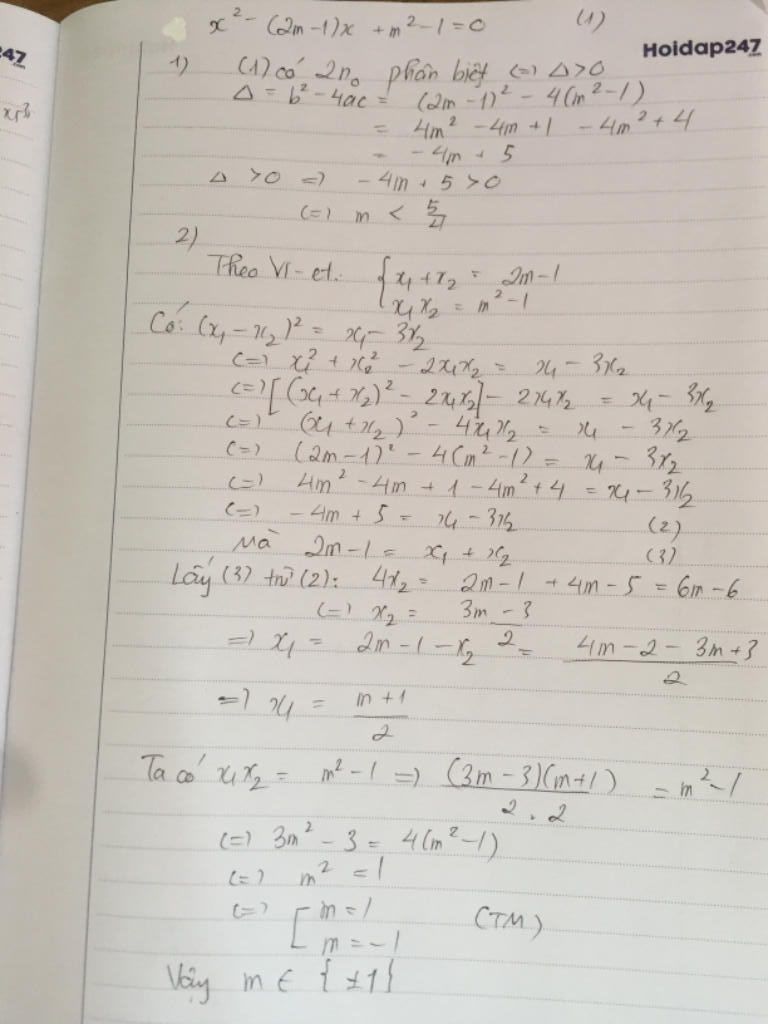 247
.com
x² - (2m-1)x + m² - 1 = 0 (1)
Hoidap247
.com
1) (1) có 2 no phân biệt (=) Δ>0
Δ = b² - 4ac = (2m-1)² - 4(m²-1)
= 4m² - 4m + 1 - 4m² + 4
= -4m + 5
Δ >0 =) -4m + 5 >0
(=) m < 5/4
2)
Theo Vi-et: { x₁ + x₂ = 2m-1
x₁x₂ = m² - 1
Có: (x₁ - x₂)² = x₁ - 3x₂
(=) x₁² + x₂² - 2x₁x₂ = x₁ - 3x₂
(=) [(x₁ + x₂)² - 2x₁x₂] - 2x₁x₂ = x₁ - 3x₂
(=) (x₁ + x₂)² - 4x₁x₂ = x₁ - 3x₂
(=) (2m-1)² - 4(m²-1) = x₁ - 3x₂
(=) 4m² - 4m + 1 - 4m² + 4 = x₁ - 3x₂
(=) -4m + 5 = x₁ - 3x₂ (2)
Mà 2m-1 = x₁ + x₂ (3)
Lấy (3) trừ (2): 4x₂ = 2m-1 + 4m-5 = 6m-6
(=) x₂ = (3m-3)/2
=) x₁ = 2m-1-x₂ = (4m-2-3m+3)/2
=) x₁ = (m+1)/2
Ta có x₁x₂ = m²-1 =) (3m-3)(m+1)/2.2 = m²-1
(=) 3m² - 3 = 4(m²-1)
(=) m² = 1
(=) [ m = 1 (TM)
m = -1
Vậy m ∈ {±1}